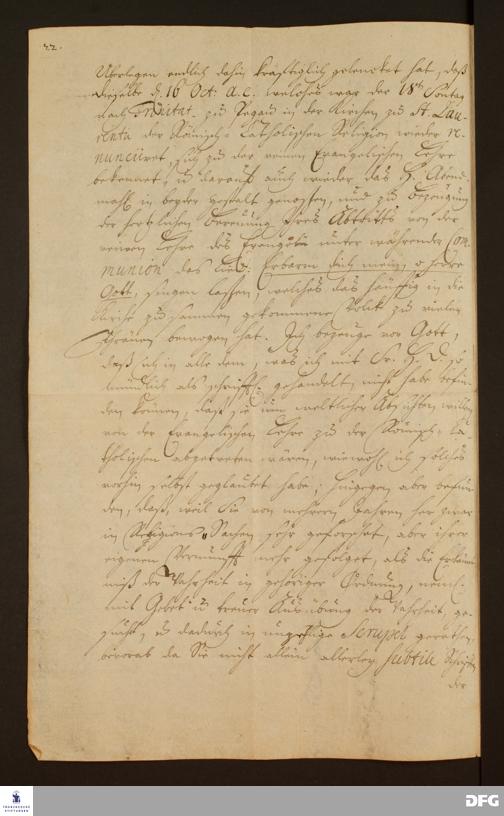 22.
Uberlegen endlich dahin kräfftiglich gelencket hat, daß
dieselbe d. 16 Oct: a.c. welches war der 18te Sontag
nach Trinitat. zu Pegau in der Kirchen zu St. Lau-
rentii der Römisch-Catholischen Religion wieder re-
nunciiret, sich zu der reinen Evangelischen Lehre
bekennet, u. darauf auch wieder das H. Abend-
mahl in beyder gestalt genossen, und zu bezeugung
der hertzlichen bereuung ihres Abtritts von der
reinen Lehre des Evangelii unter währender Com-
munion das Lied: Erbarm dich mein, o Herre
Gott, singen lassen, welches das häuffig in die
Kirche zusammen gekommene Volck zu vielen
Thränen bewogen hat. Ich bezeuge vor Gott,
daß ich in alle dem, was ich mit Sr. H. D. so
mündlich als schrifftl. gehandelt, nicht habe befin-
den können, daß sie um weltlicher Absichten willen
von der Evangelischen Lehre zu der Römisch-Ca-
tholischen abgetreten wären, wiewohl ich solches
vorhin selbst geglaubet habe; hingegen aber befun-
den, daß, weil Sie von mehrern Jahren her zwar
in Religions-Sachen sehr geforschet, aber ihrer
eigenen Vernunfft mehr gefolget, als die Erkännt-
niß der Wahrheit in gehöriger Ordnung, neml.
mit Gebet u. treuer Ausübung der Wahrheit, ge-
sucht, u. dadurch in Scrupel gerathen,
bevorab da Sie nicht allein allerley subtile Schrifften
der
FRANCKESCHE
STIFTUNGEN
DFG